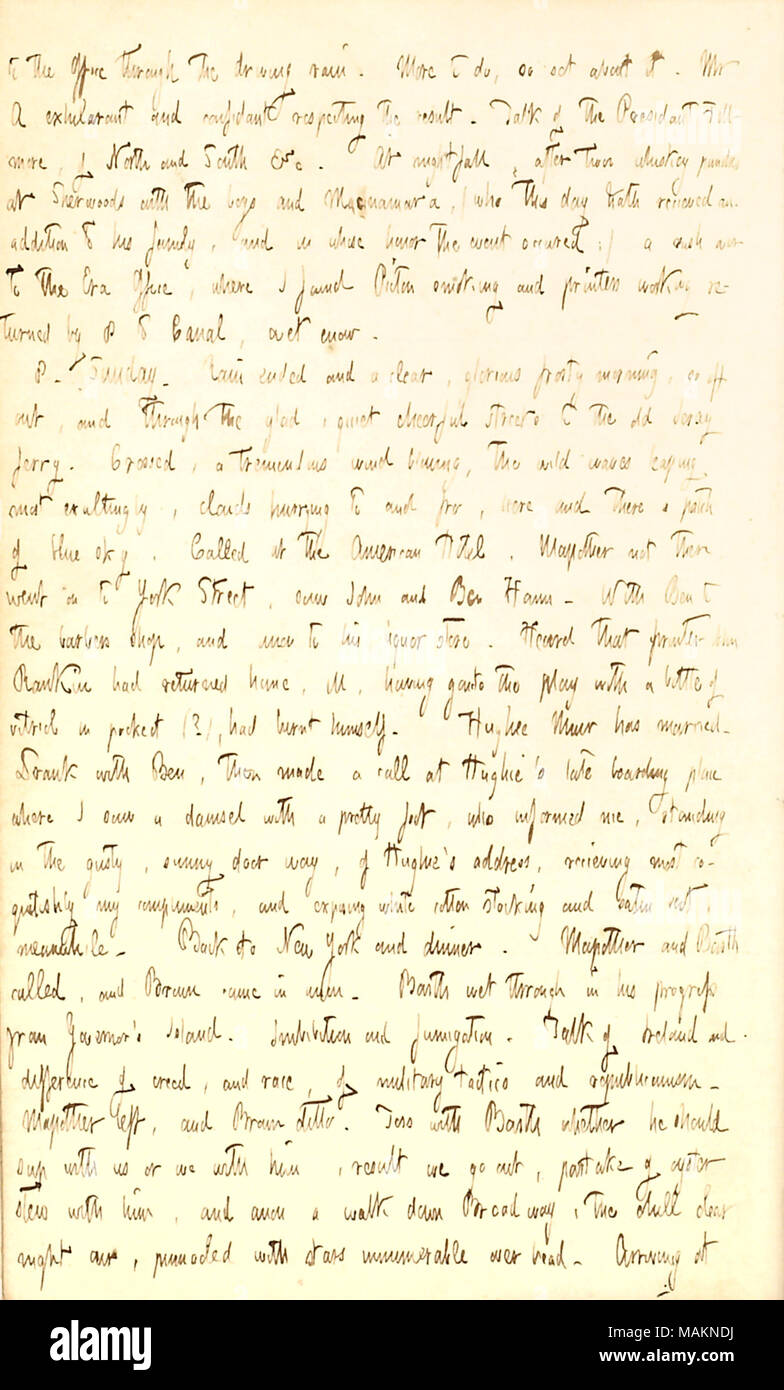 to the Office through the driving rain. More to do, so set about it. Mr
A exhilarant and confidant respecting the result. Talk of the President Fill-
more, of North and South &c. At nightfall, after two whiskey punches
at Sherwoods with the boys and Macnamara, (who this day hath recieved an
addition to his family, and in whose honor the event occured;) a rush over
to the Era Office, where I found Picton smoking and printers working re-
turned by P to Canal, wet enow.
8. Sunday. Rain ended and a clear, glorious frosty morning, so off
out, and through the glad, quiet cheerful streets to the old Jersey
ferry. Crossed, a tremendous wind blowing, the wild waves leaping
most exultingly, clouds hurrying to and fro, here and there a patch
of blue sky. Called at the American Hotel. Mapother not there
went on to York Street, saw John and Ben Hann. With Ben to
the barbers shop, and anon to his liquor store. Heard that printer
Rankin had returned home, ill, having gone to the play with a bottle of
vitriol in pocket (?), had burnt himself. Hughie Muir has married.
Drank with Ben, then made a call at Hughie's late boarding place
where I saw a damsel with a pretty foot, who informed me, standing
in the gusty, sunny door way, of Hughie's address, recieving most co-
quettishly my compliments, and exposing white cotton stocking and
meanwhile. Back to New York and dinner. Mapother and Barth
called, and Brown came in anon. Barth wet through in his progress
from Governor's Island. Imbibition and fumigation. Talk of Ireland and
difference of creed, and race, of military tactics and republicanism.
Mapother left, and Brown ditto. Toss with Barth whether he should
sup with us or we with him, result we go out, partake of oyster
stew with him, and anon a walk down Broadway, the chill clear
night air, pinnacled with stars innumerable over head. Arriving at
alamy
alamy
Image ID: MAKNDJ
www.alamy.com